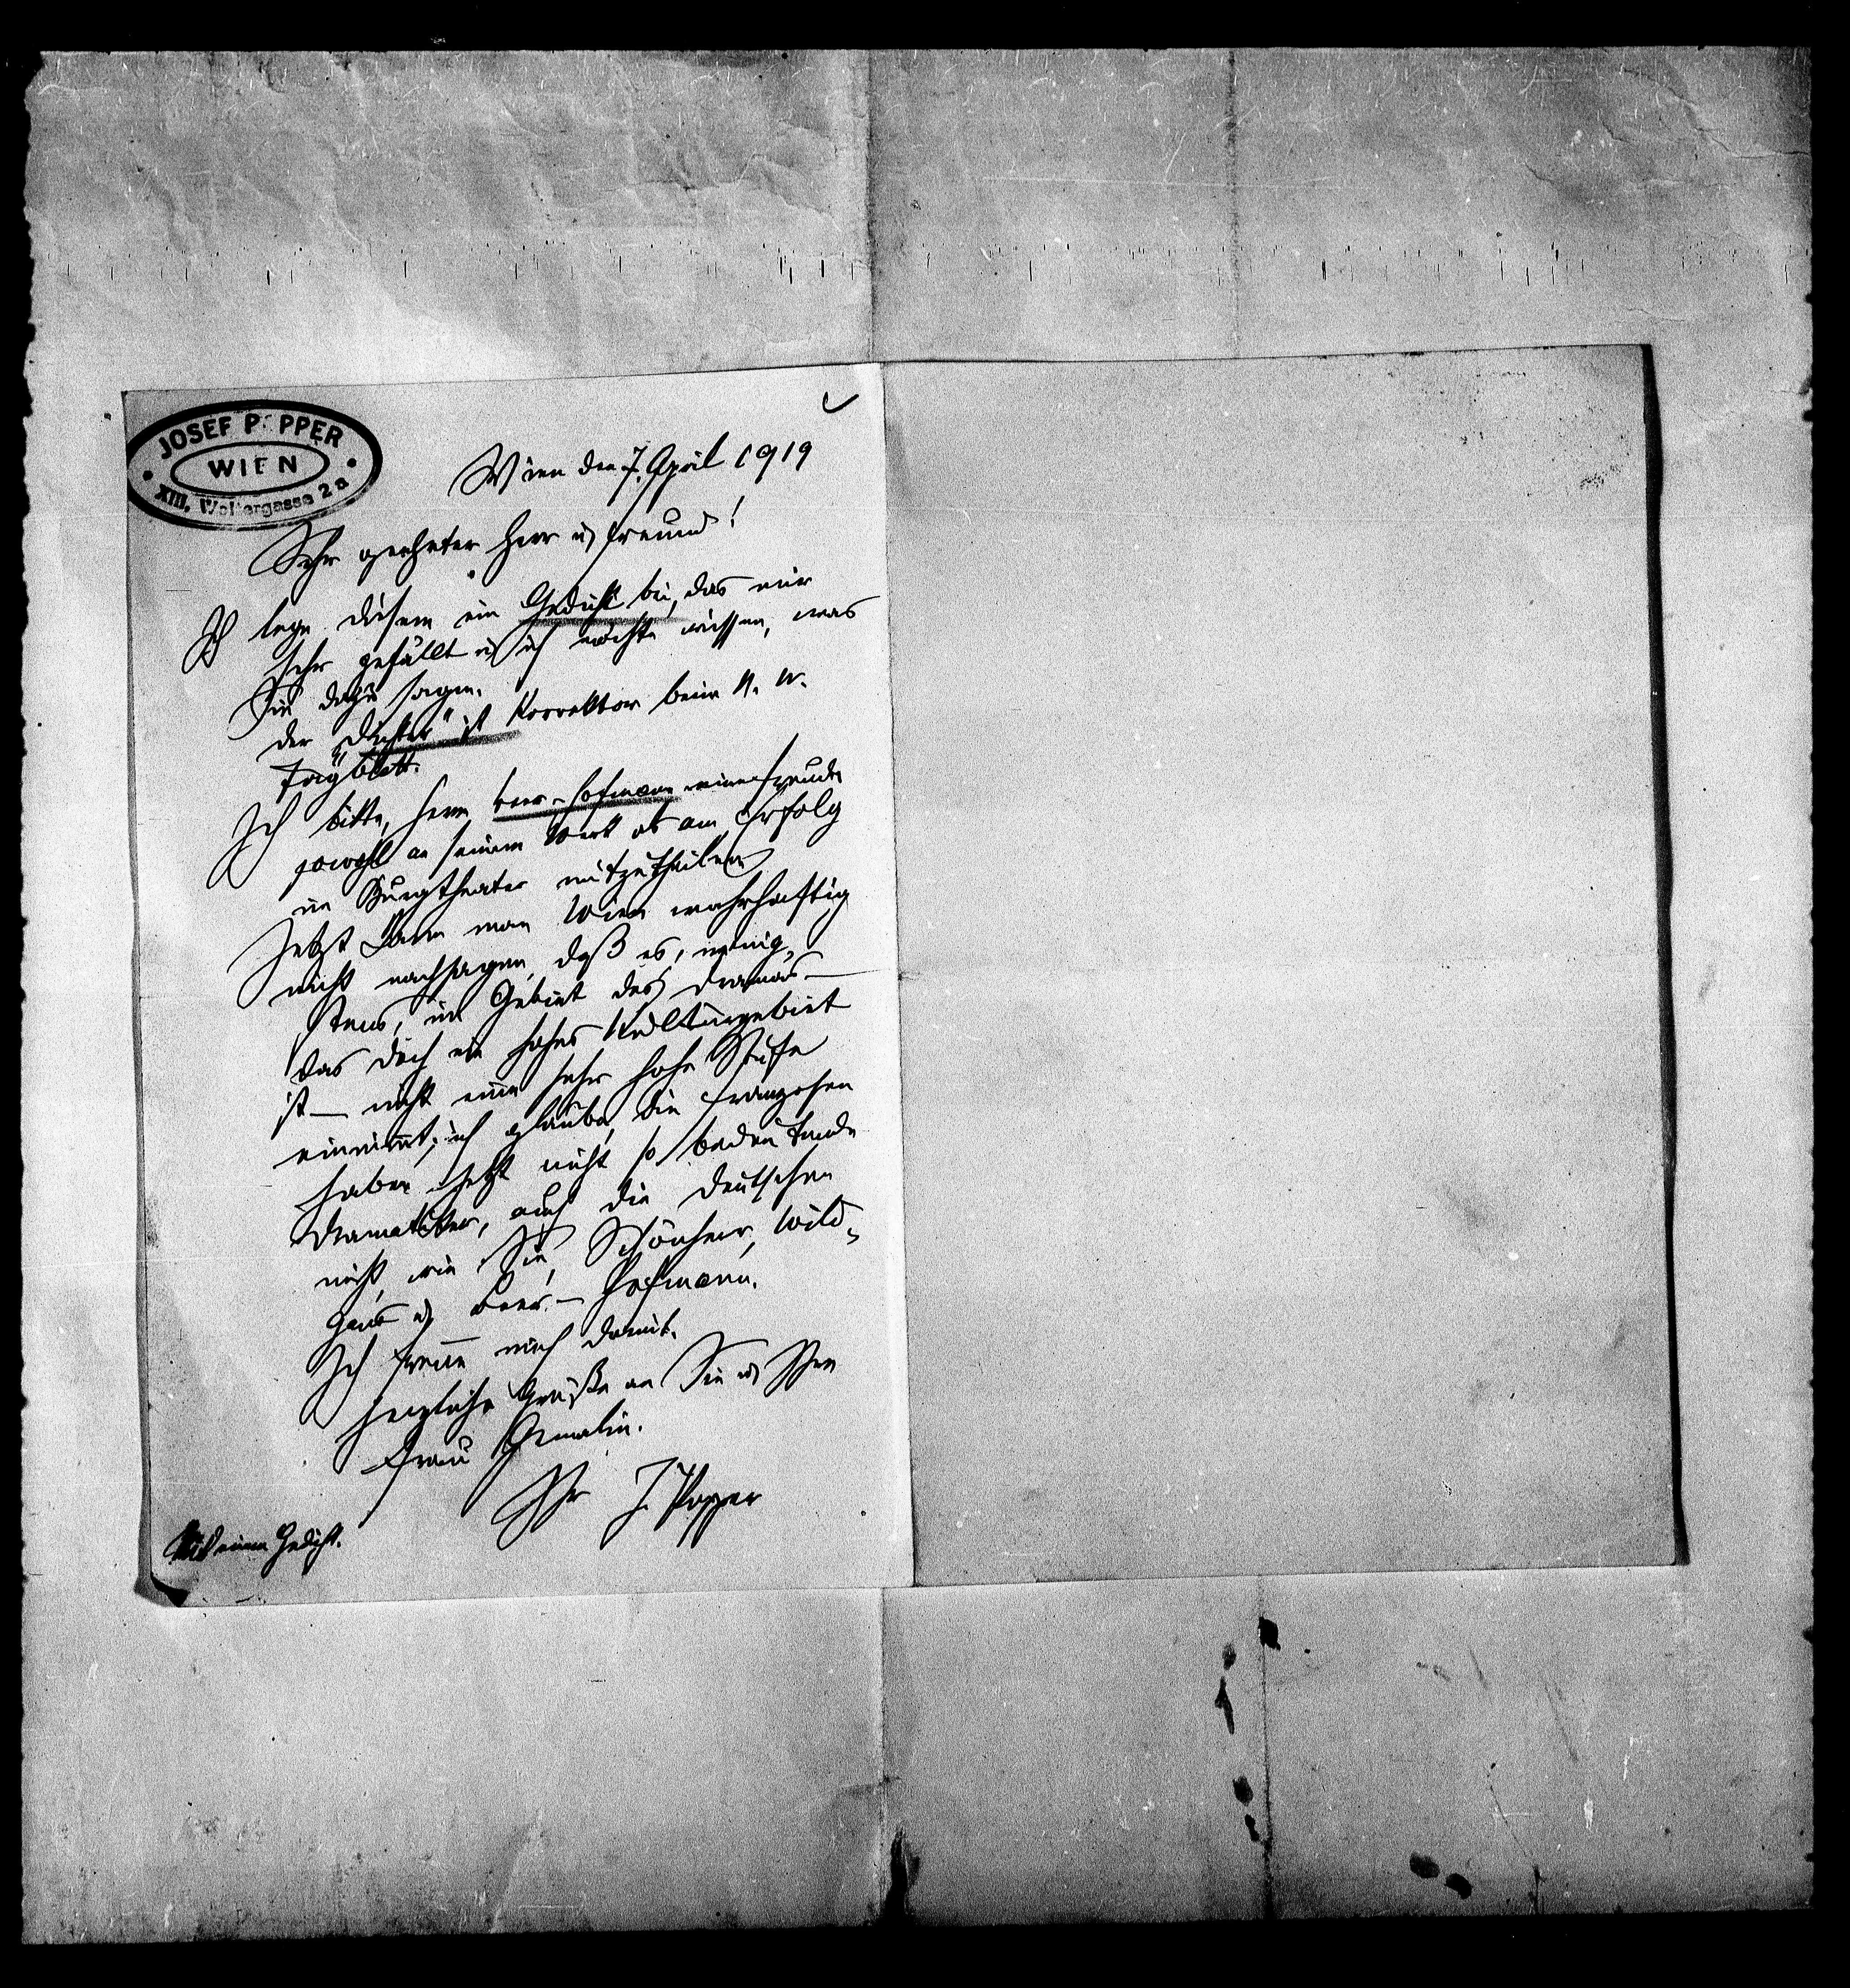 JOSEF POPPER
WIEN
XIII, Woltergasse 2 a
Wien den 7. April 1919
Sehr geehrter Herr u Freund!
Ich lege diesem ein Gedicht bei, das mir
sehr gefällt u ich möchte wissen, was
Sie dazu sagen.
Der „Dichter" ist Korrektor beim N. W.
Tagblatt.
Ich bitte, Herrn Beer-Hofmann meine Freude
sowohl an seinem Werk als am Erfolg
im Burgtheater mitzutheilen
Jetzt kann man Wien wahrhaftig
nicht nachsagen, daß es, wenig-
stens, im Gebiet des Dramas –
das doch ein hohes Kulturgebiet
ist – nicht eine sehr hohe Stufe
einnimt; ich glaube, die Franzosen
haben jetzt nicht so bedeutende
Dramatiker, auch die Deutschen
nicht, wie Sie, Schönherr, Wild-
gans u Beer-Hofmann.
Ich freue mich damit.
Herzliche Grüße an Sie u Ihre
Frau Gemalin.
Ihr J. Popper
Mit einem Gedicht.